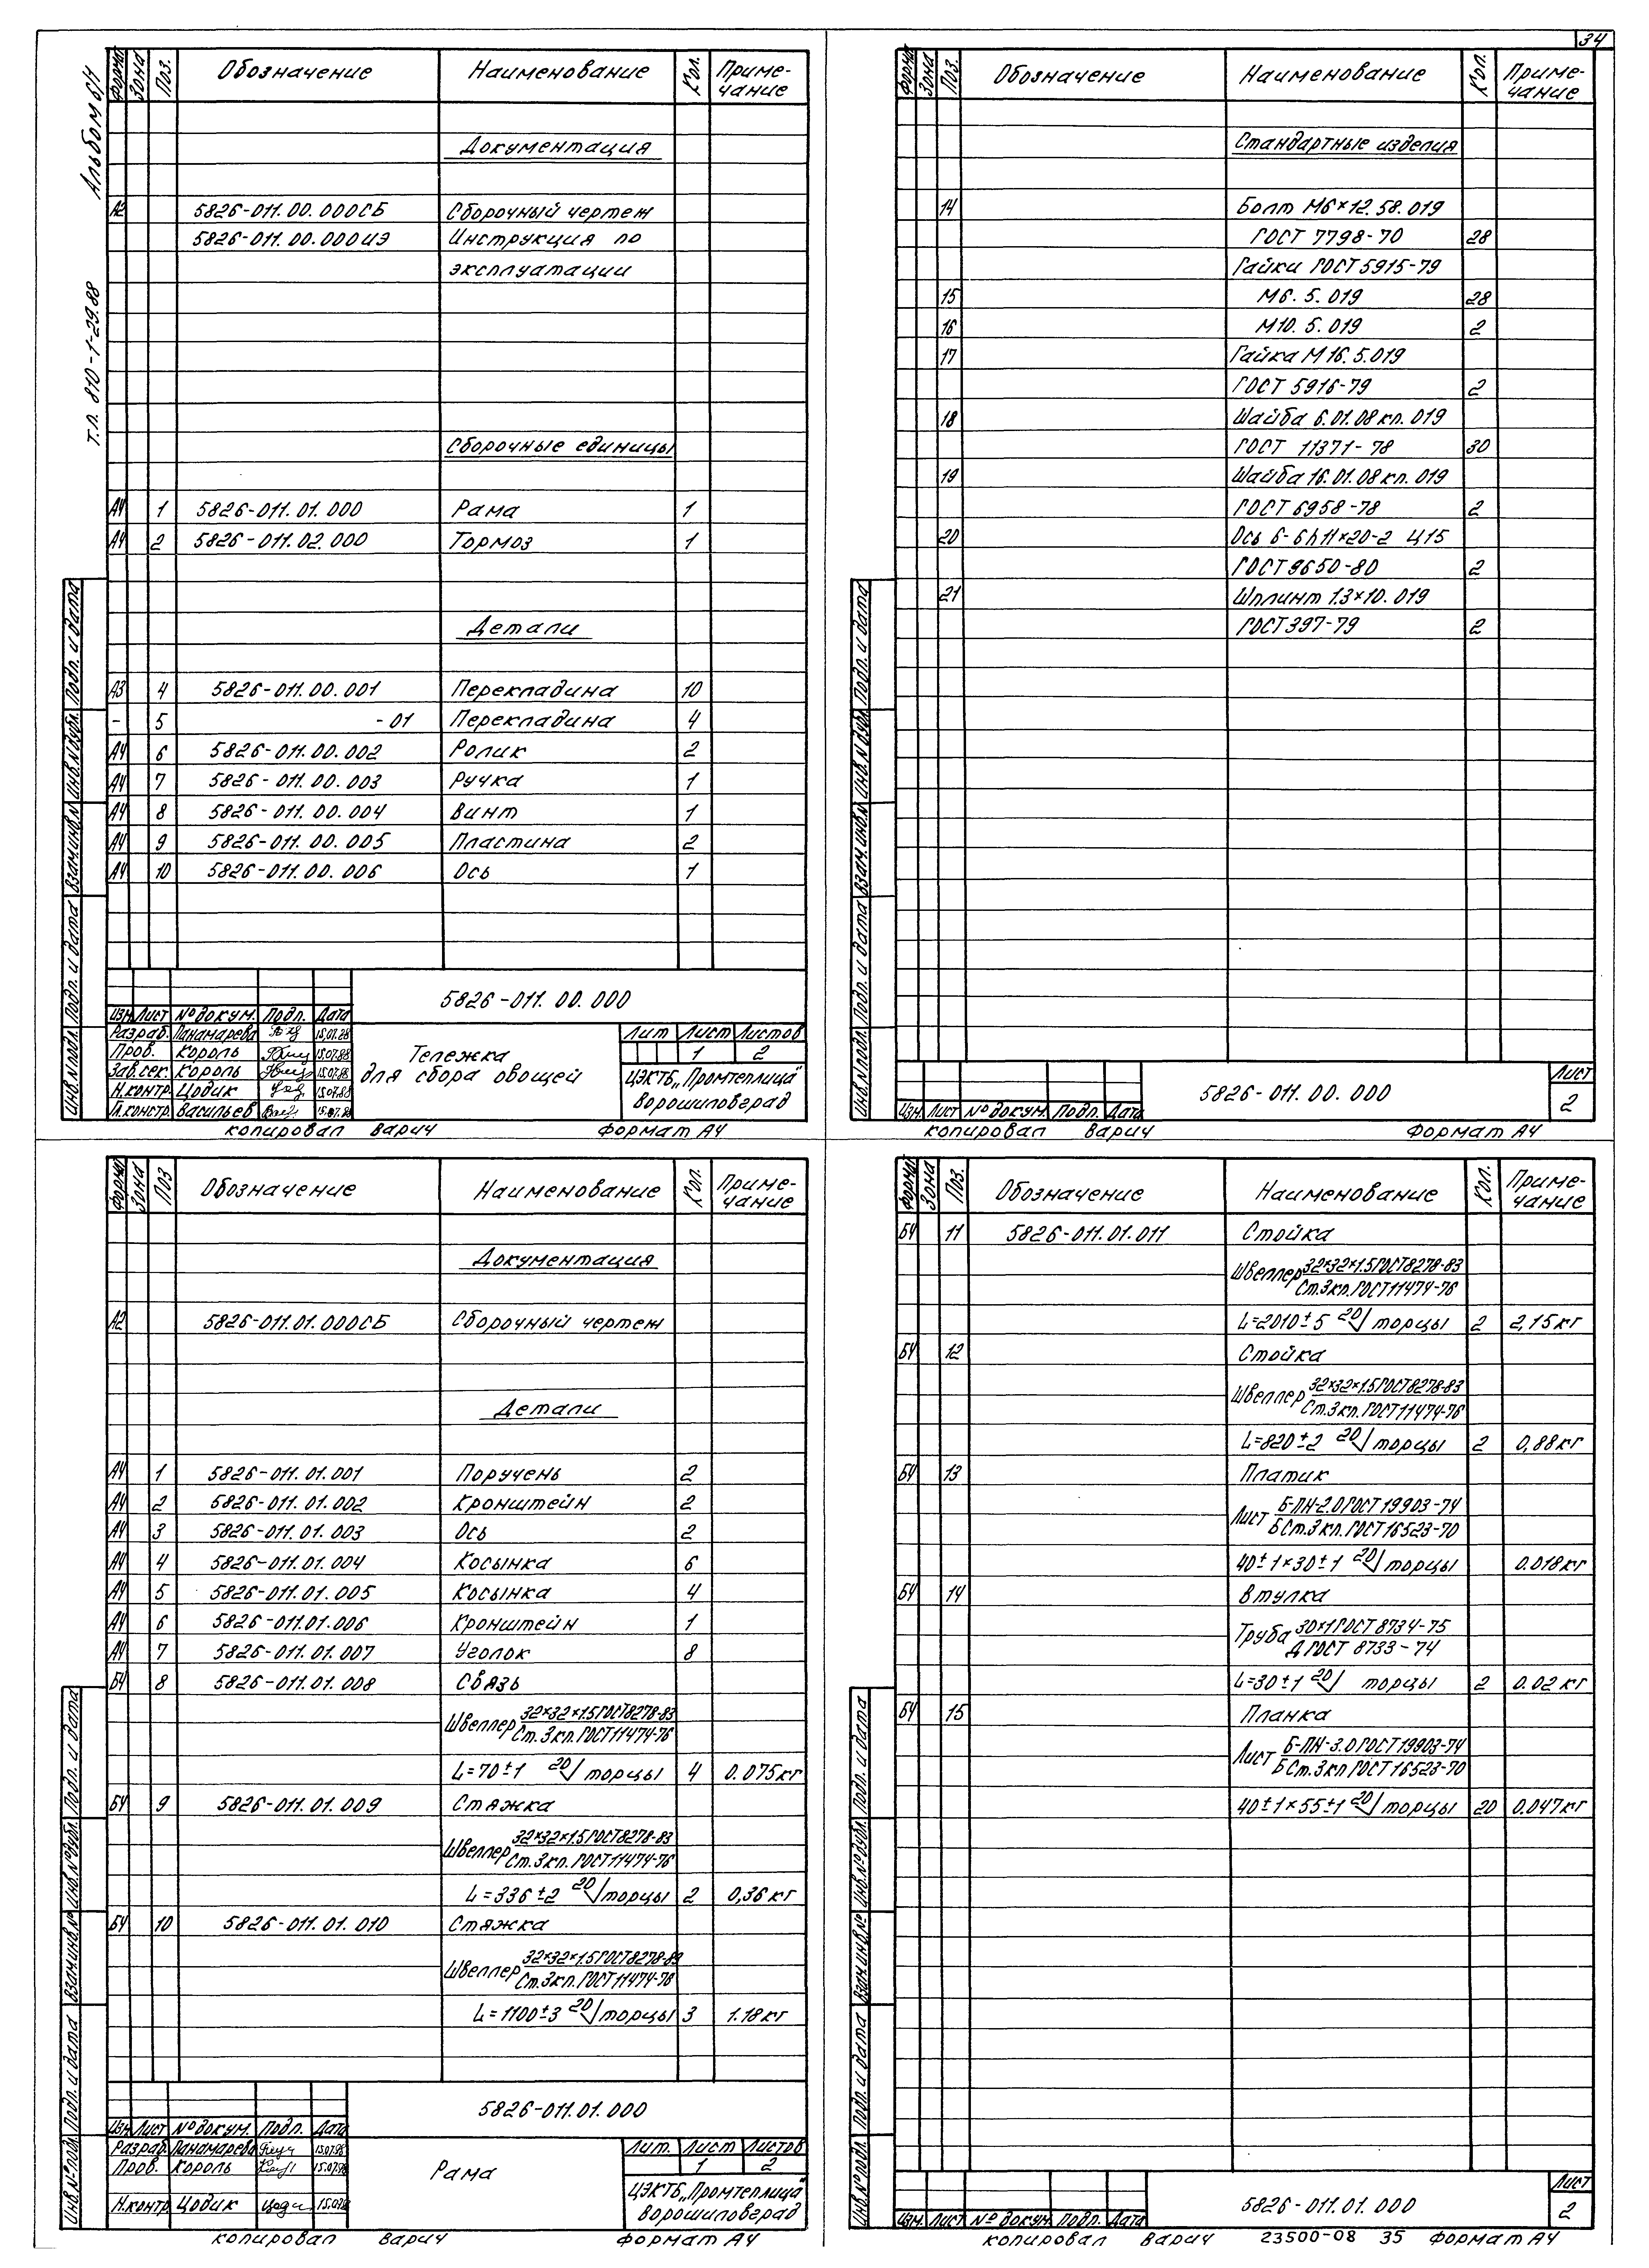 34
Альбом 6.1
т.п. 810-1-29.88
Формат Зона Поз. Обозначение Наименование Кол. Приме-
чание
Документация
А2 5826-011.00.000СБ Сборочный чертеж
5826-011.00.000ИЭ Инструкция по
эксплуатации
Сборочные единицы
А4 1 5826-011.01.000 Рама 1
А4 2 5826-011.02.000 Тормоз 1
Детали
А3 4 5826-011.00.001 Перекладина 10
- 5 -01 Перекладина 4
А4 6 5826-011.00.002 Ролик 2
А4 7 5826-011.00.003 Ручка 1
А4 8 5826-011.00.004 Винт 1
А4 9 5826-011.00.005 Пластина 2
А4 10 5826-011.00.006 Ось 1
Инв.№подл. Подп. и дата Взам.инв.№ Инв.№дубл. Подп. и дата
5826-011.00.000
Изм Лист №докум. Подп. Дата
Разраб. Панамарева 15.07.88
Пров. Король 15.07.88
Зав.сек. Король 15.07.88
Н.контр. Цодик 15.07.88
Гл.констр. Васильев 15.07.88
Тележка
для сбора овощей
Лит Лист Листов
1 2
ЦЭКТБ „Промтеплица"
Ворошиловград
копировал Варич Формат А4
Формат Зона Поз. Обозначение Наименование Кол. Приме-
чание
Стандартные изделия
14 Болт М6×12.58.019
ГОСТ 7798-70 28
Гайки ГОСТ 5915-79
15 М6.5.019 28
16 М10.5.019 2
17 Гайка М16.5.019
ГОСТ 5916-79 2
18 Шайба 6.01.08кп.019
ГОСТ 11371-78 30
19 Шайба 16.01.08кп.019
ГОСТ 6958-78 2
20 Ось 6-6h11×20-2 Ц15
ГОСТ 9650-80 2
21 Шплинт 1.3×10.019
ГОСТ 397-79 2
Инв.№подл. Подп. и дата Взам.инв.№ Инв.№дубл. Подп. и дата
Изм. Лист №докум. Подп. Дата
5826-011.00.000
Лист
2
копировал Варич Формат А4
Формат Зона Поз Обозначение Наименование Кол. Приме-
чание
Документация
А2 5826-011.01.000СБ Сборочный чертеж
Детали
А4 1 5826-011.01.001 Поручень 2
А4 2 5826-011.01.002 Кронштейн 2
А4 3 5826-011.01.003 Ось 2
А4 4 5826-011.01.004 Косынка 6
А4 5 5826-011.01.005 Косынка 4
А4 6 5826-011.01.006 Кронштейн 1
А4 7 5826-011.01.007 Уголок 8
БЧ 8 5826-011.01.008 Связь
Швеллер 32×32×1.5 ГОСТ 8278-83
Ст.3кп. ГОСТ 11474-76
L=70±1 20 торцы 4 0.075кг
БЧ 9 5826-011.01.009 Стяжка
Швеллер 32×32×1.5 ГОСТ 8278-83
Ст.3кп. ГОСТ 11474-76
L=336±2 20 торцы 2 0,36кг
БЧ 10 5826-011.01.010 Стяжка
Швеллер 32×32×1.5 ГОСТ 8278-83
Ст.3кп. ГОСТ 11474-76
L=1100±3 20 торцы 3 1.18кг
Инв.№подл. Подп. и дата Взам.инв.№ Инв.№дубл. Подп. и дата
5826-011.01.000
Изм Лист №докум. Подп. Дата
Разраб. Панамарева 15.07.88
Пров. Король 15.07.88
Н.контр. Цодик 15.07.88
Рама
Лит. Лист Листов
1 2
ЦЭКТБ „Промтеплица"
Ворошиловград
копировал Варич Формат А4
Формат Зона Поз. Обозначение Наименование Кол. Приме-
чание
БЧ 11 5826-011.01.011 Стойка
Швеллер 32×32×1.5 ГОСТ 8278-83
Ст.3кп. ГОСТ 11474-76
L=2010±5 20 торцы 2 2,15кг
БЧ 12 Стойка
Швеллер 32×32×1.5 ГОСТ 8278-83
Ст.3кп. ГОСТ 11474-76
L=820±2 20 торцы 2 0,88кг
БЧ 13 Платик
Лист Б-ПН-2.0 ГОСТ 19903-74
БСт.3кп. ГОСТ 16523-70
40±1×30±1 20 торцы 0.018кг
БЧ 14 Втулка
Труба 30×1 ГОСТ 8734-75
Д ГОСТ 8733-74
L=30±1 20 торцы 2 0.02кг
БЧ 15 Планка
Лист Б-ПН-3.0 ГОСТ 19903-74
БСт.3кп ГОСТ 16523-70
40±1×55±1 20 торцы 20 0.047кг
Инв.№подл. Подп. и дата Взам.инв.№ Инв.№дубл. Подп. и дата
Изм. Лист №докум Подп. Дата
5826-011.01.000
Лист
2
копировал Варич 23500-08 35 Формат А4